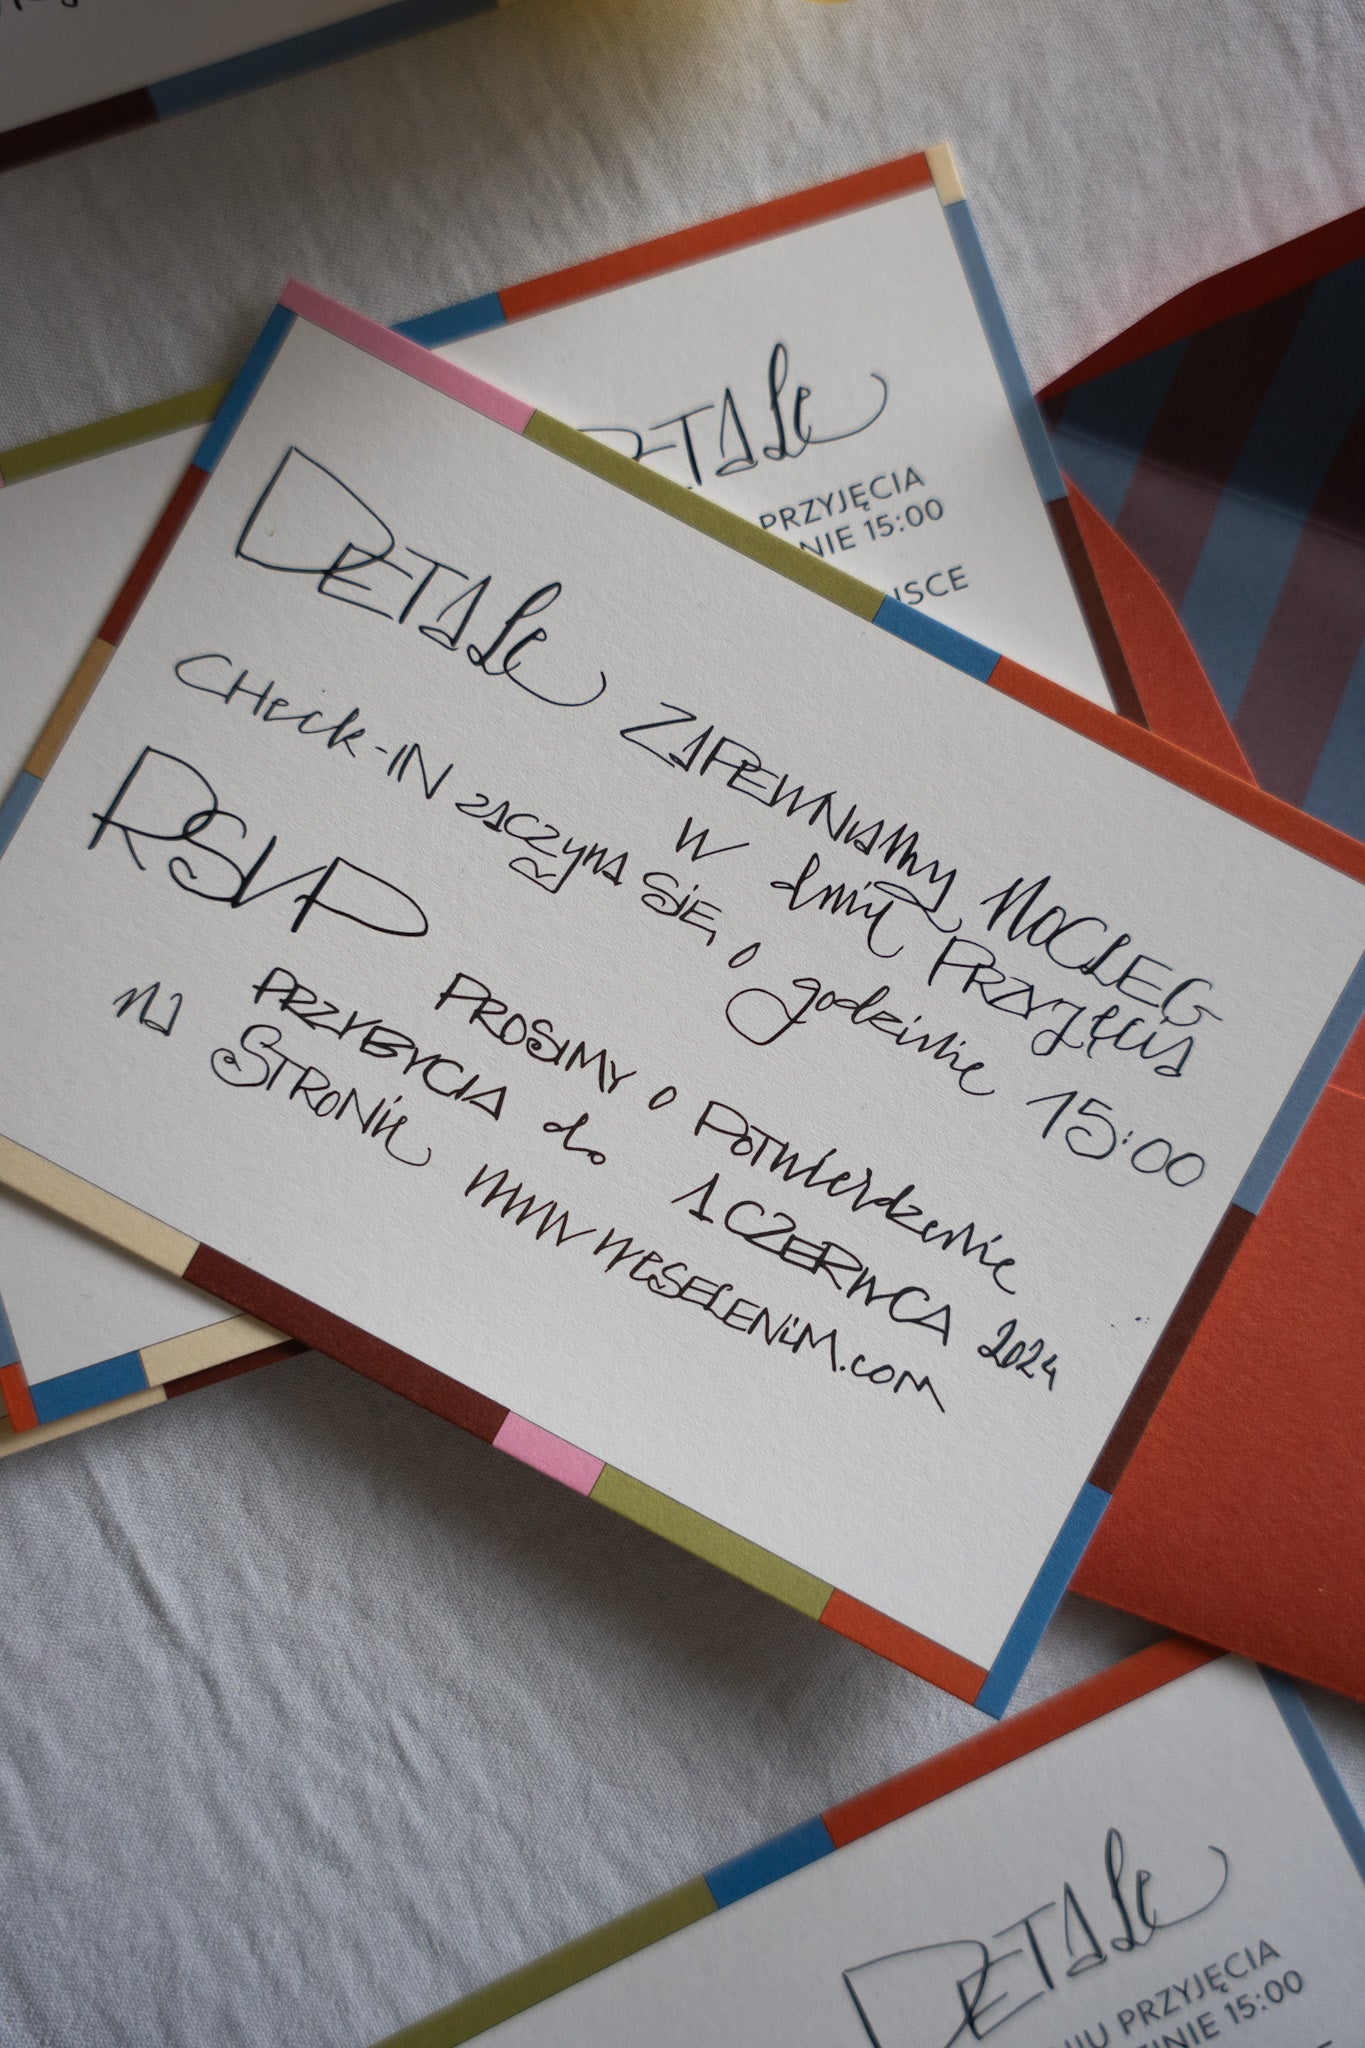 DETALE
PRZYJĘCIA
15:00
DETALE ZAPEWNIAMY NOCLEG
w dniu PRZYJĘCIA
CHECK-IN zaczyna się o godzinie 15:00
RSVP PROSIMY o Potwierdzenie
PRZYBYCIA do 1 CZERWCA 2024
na STRONIE WWW.WESELENIM.com
DETALE
PRZYJĘCIA
15:00